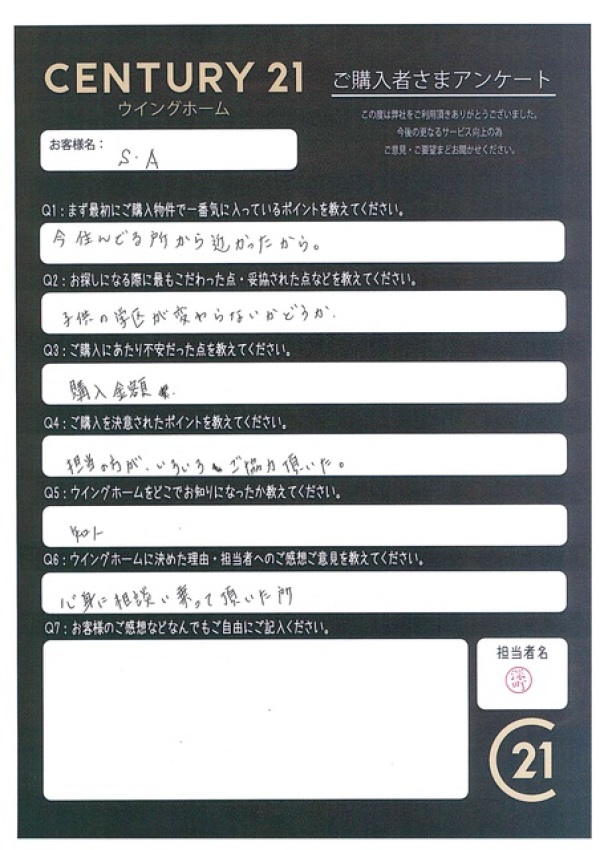 CENTURY 21
ウイングホーム
ご購入者さまアンケート
この度は弊社をご利用頂きありがとうございました。
今後の更なるサービス向上の為
ご意見・ご要望まどお聞かせください。
お客様名：
S.A
Q1：まず最初にご購入物件で一番気に入っているポイントを教えてください。
今住んでる所から近かったから。
Q2：お探しになる際に最もこだわった点・妥協された点などを教えてください。
子供の学区が変わらないかどうか.
Q3：ご購入にあたり不安だった点を教えてください。
購入金額
Q4：ご購入を決意されたポイントを教えてください。
担当の方が、いろいろ ご協力頂いた。
Q5：ウイングホームをどこでお知りになったか教えてください。
Q6：ウイングホームに決めた理由・担当者へのご感想ご意見を教えてください。
心身に相談い乗って頂いた所
Q7：お客様のご感想などなんでもご自由にご記入ください。
担当者名
21